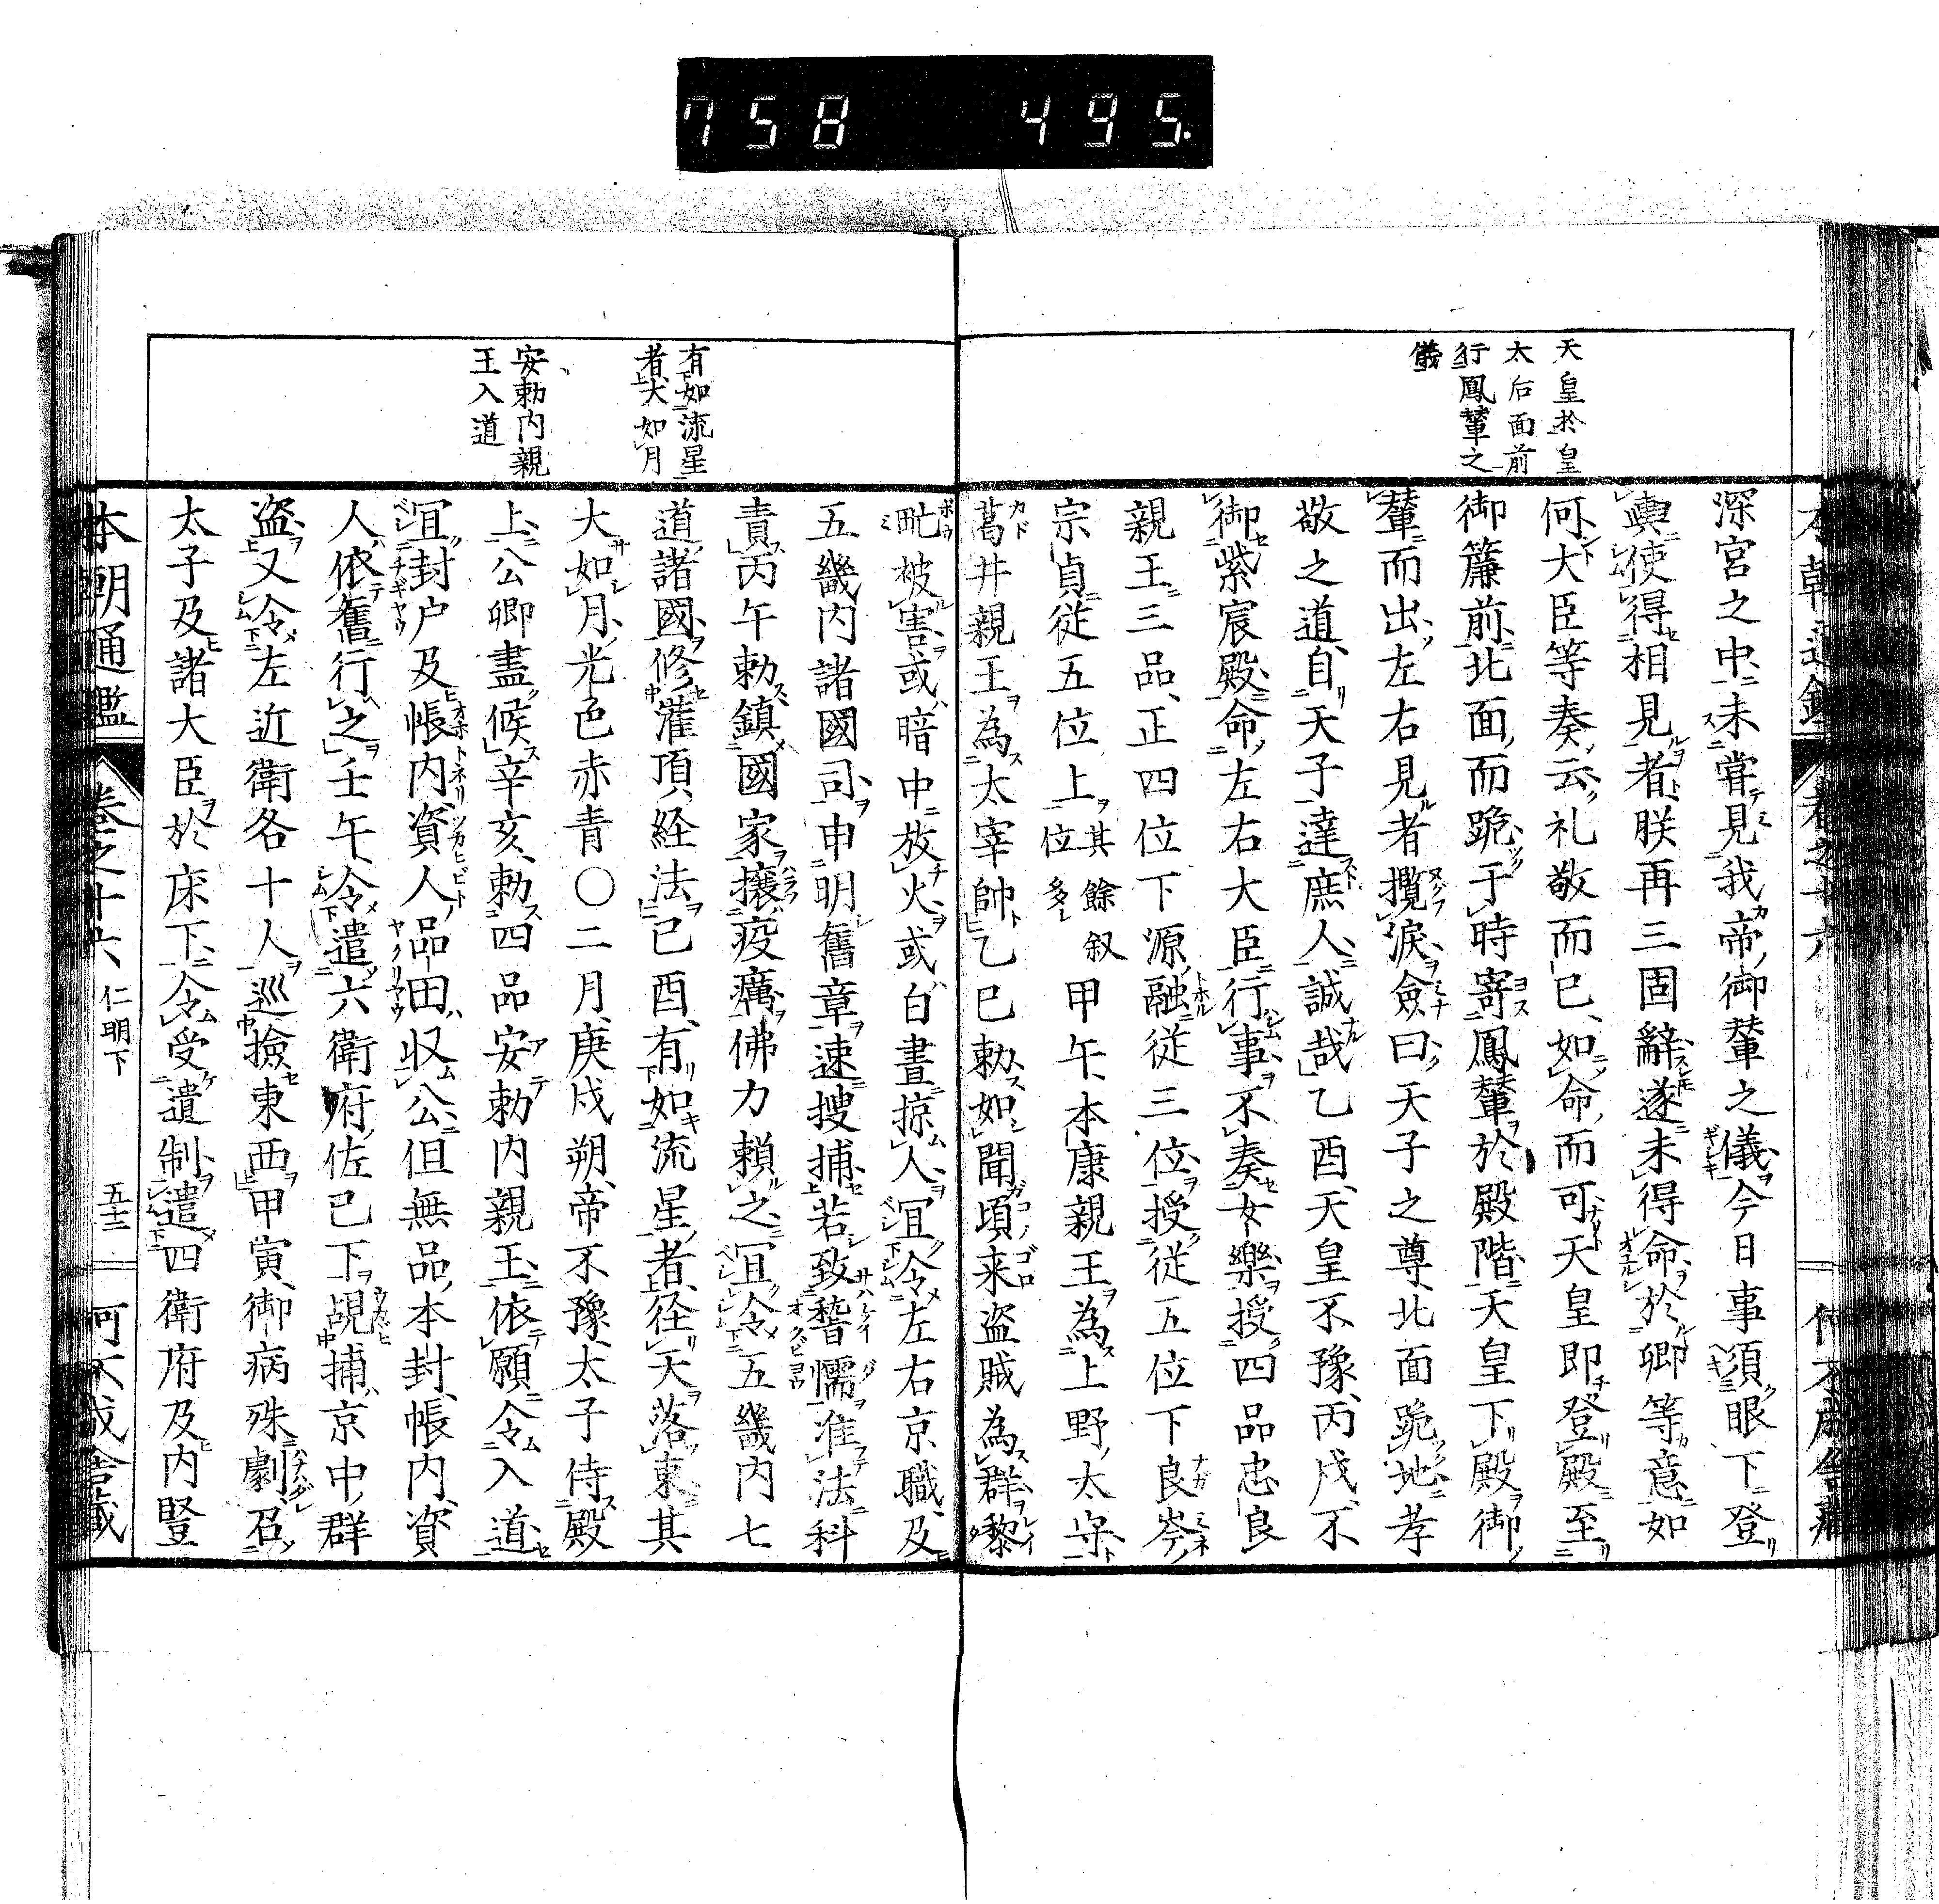 758 495.
天皇於皇
太后面前
行鳳輦之
儀
深宮之中未嘗見我帝御輦之儀今日事須眼下登
輿使得相見者朕再三固辭遂未得命於卿等意如
何大臣等奏云礼敬而已如命而可天皇即登殿至
御簾前北面而跪于時寄鳳輦於殿階天皇下殿御
輦而出左右見者攬涙僉曰天子之尊北面跪地孝
敬之道自天子達庶人誠哉乙酉天皇不豫丙戌不
御紫宸殿命左右大臣行事不奏女樂授四品忠良
親王三品正四位下源融従三位授従五位下良岑
宗貞従五位上其餘叙位多甲午本康親王為上野太守
葛井親王為太宰帥乙巳勅如聞頃来盗賊為群黎
甿被害或暗中放火或白晝掠人冝令左右京職及
五畿内諸國司申明舊章速捜捕若致𢡊懦准法科
責丙午勅鎮國家攘疫癘佛力頼之冝令五畿内七
道諸國修灌頂経法己酉有如流星者径天落東其
大如月光色赤青〇二月庚戌朔帝不豫太子侍殿
上公卿盡候辛亥勅四品安勅内親王依願令入道
冝封戸及帳内資人品田収公但無品本封帳内資
人依舊行之壬午令遣六衛府佐已下覘捕京中群
盗又令左近衛各十人巡撿東西甲寅御病殊劇召
太子及諸大臣於床下令受遺制遣四衛府及内豎
有如流星
者大如月
安勅内親
王入道
本朝通鑑 巻之十六 仁明下 五十二